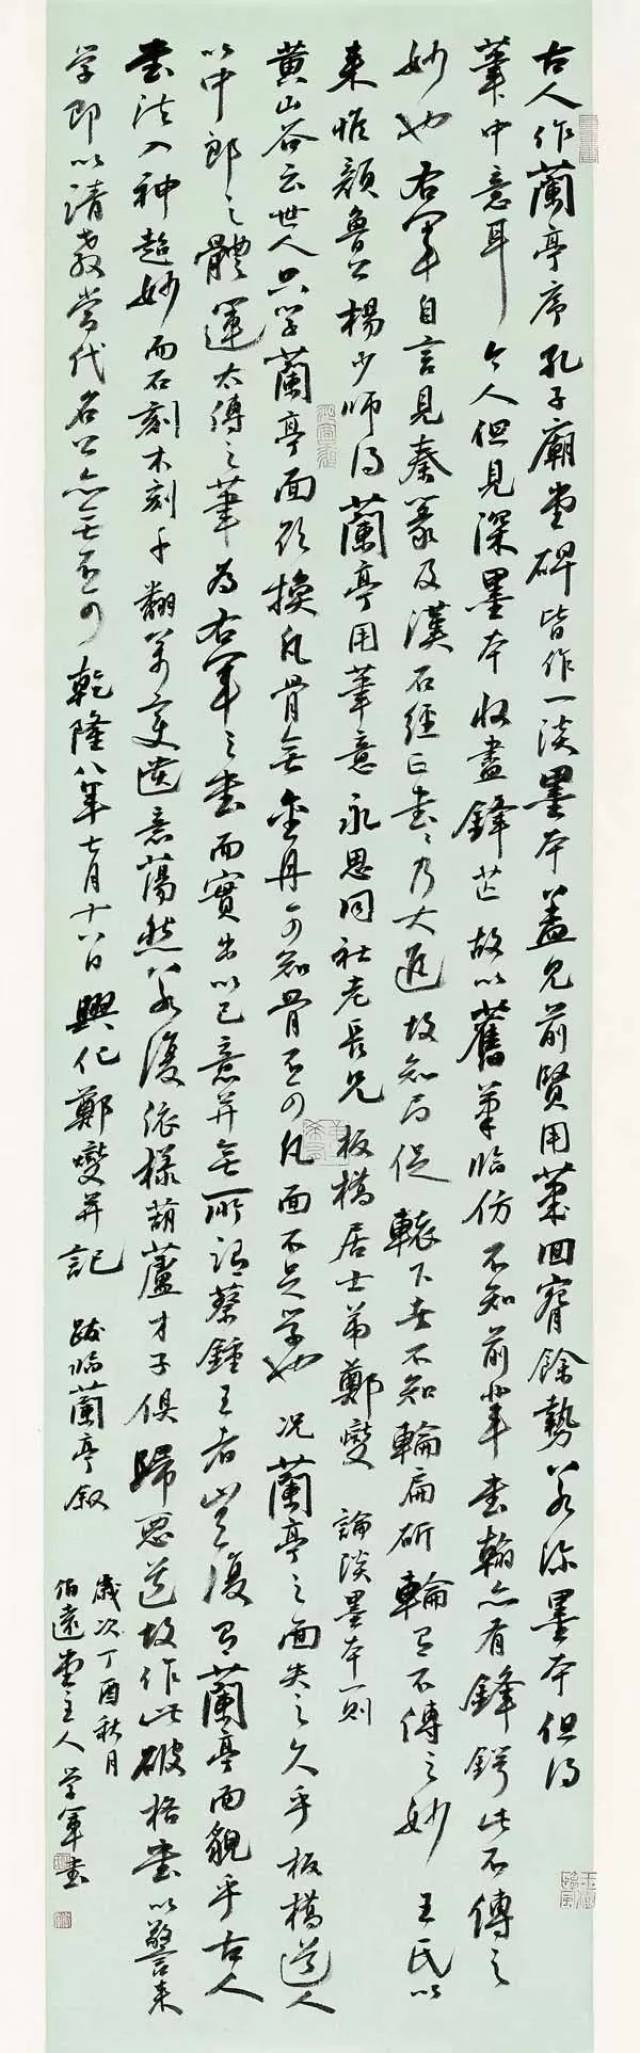 古人作蘭亭序孔子廟堂碑皆作一淡墨本蓋見前賢用筆回腕餘勢若深墨本但得
筆中意耳今人但見深墨本收盡鋒芒故以舊筆臨仿不知前輩書翰亦有鋒鍔此不傳之
妙也右軍自言見秦篆及漢石經正書書乃大進故知局促轅下者不知輪扁斫輪有不傳之妙王氏以
來惟顏魯公楊少師得蘭亭用筆意永思同社老長兄板橋居士弟鄭燮論淡墨本一則
黃山谷云世人只學蘭亭面欲換凡骨無金丹可知骨不可凡面不足學也況蘭亭之面失之久乎板橋道人
以中郎之體運太傅之筆為右軍之書而實出以己意并無所謂蔡鍾王者豈復有蘭亭面貌乎古人
書法入神超妙而石刻木刻千翻萬變遺意蕩然若復依樣葫蘆才子俱歸惡道故作此破格書以警來
学即以請教當代名公亦無不可乾隆八年七月十八日興化鄭燮并記跋臨蘭亭叙
歲次丁酉秋月
伯遠堂主人学軍書